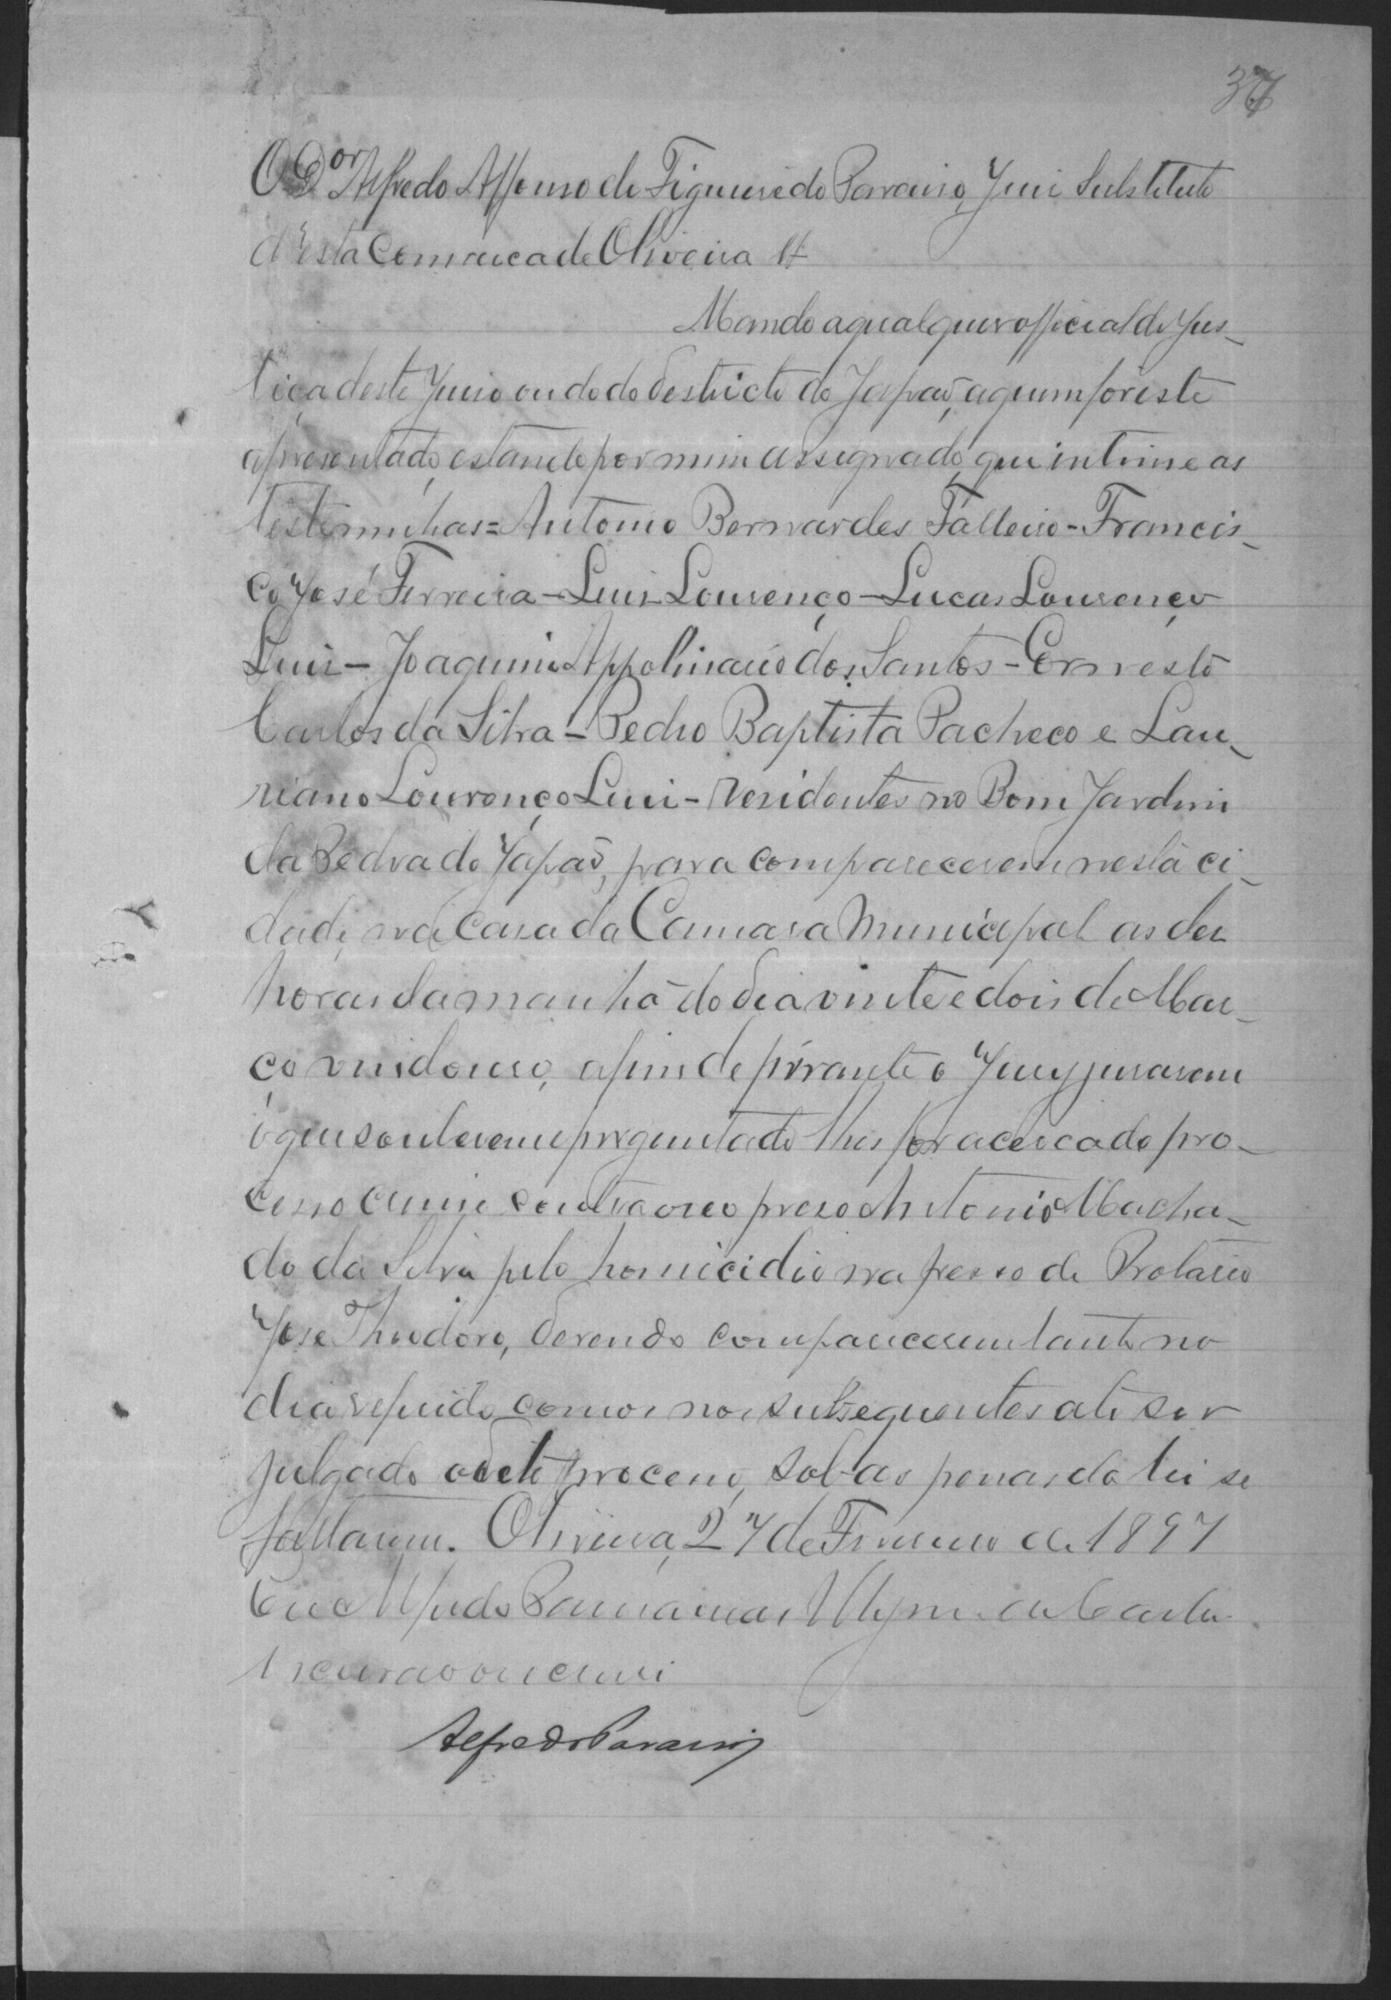 37
O D.or Alfredo Affonso de Figueiredo Paraiso, Juiz Substituto
d'esta Comarca de Oliveira &
Mando a qualquer official de Jus-
tiça deste Juizo ou do do destricto do Japão, a quem for este
apresentado, estando por mim assignado, que intime as
testemunhas = Antonio Bernardes Falleiro - Francis-
co José Ferreira - Luis Lourenço - Lucas Lourenço
Luis - Joaquim Appolinario dos Santos - Ernesto
Carlos da Silva - Pedro Baptista Pacheco e Lau-
riano Lourenço Luiz - residentes no Bom Jardim
da Pedra do Japão, para comparecerem nesta ci-
dade, na Casa da Camara Municipal as dez
horas da manhã do dia vinte e dois de Mar-
ço vindouro, afim de perante o Jury jurarem
o que souberem e preguntado lhes for acerca do pro-
cesso crime contra o reo preso Antonio Macha-
do da Silva pelo homicidio na pessoa de Protasio
José Theodoro, devendo comparecerem tanto no
dia referido como nos subsequentes até ser
julgado este processo, sob as penas da lei se
faltarem. Oliveira, 27 de Fevereiro de 1897
Eu Alfredo
escrivão o escrevi
Alfredo Paraiso